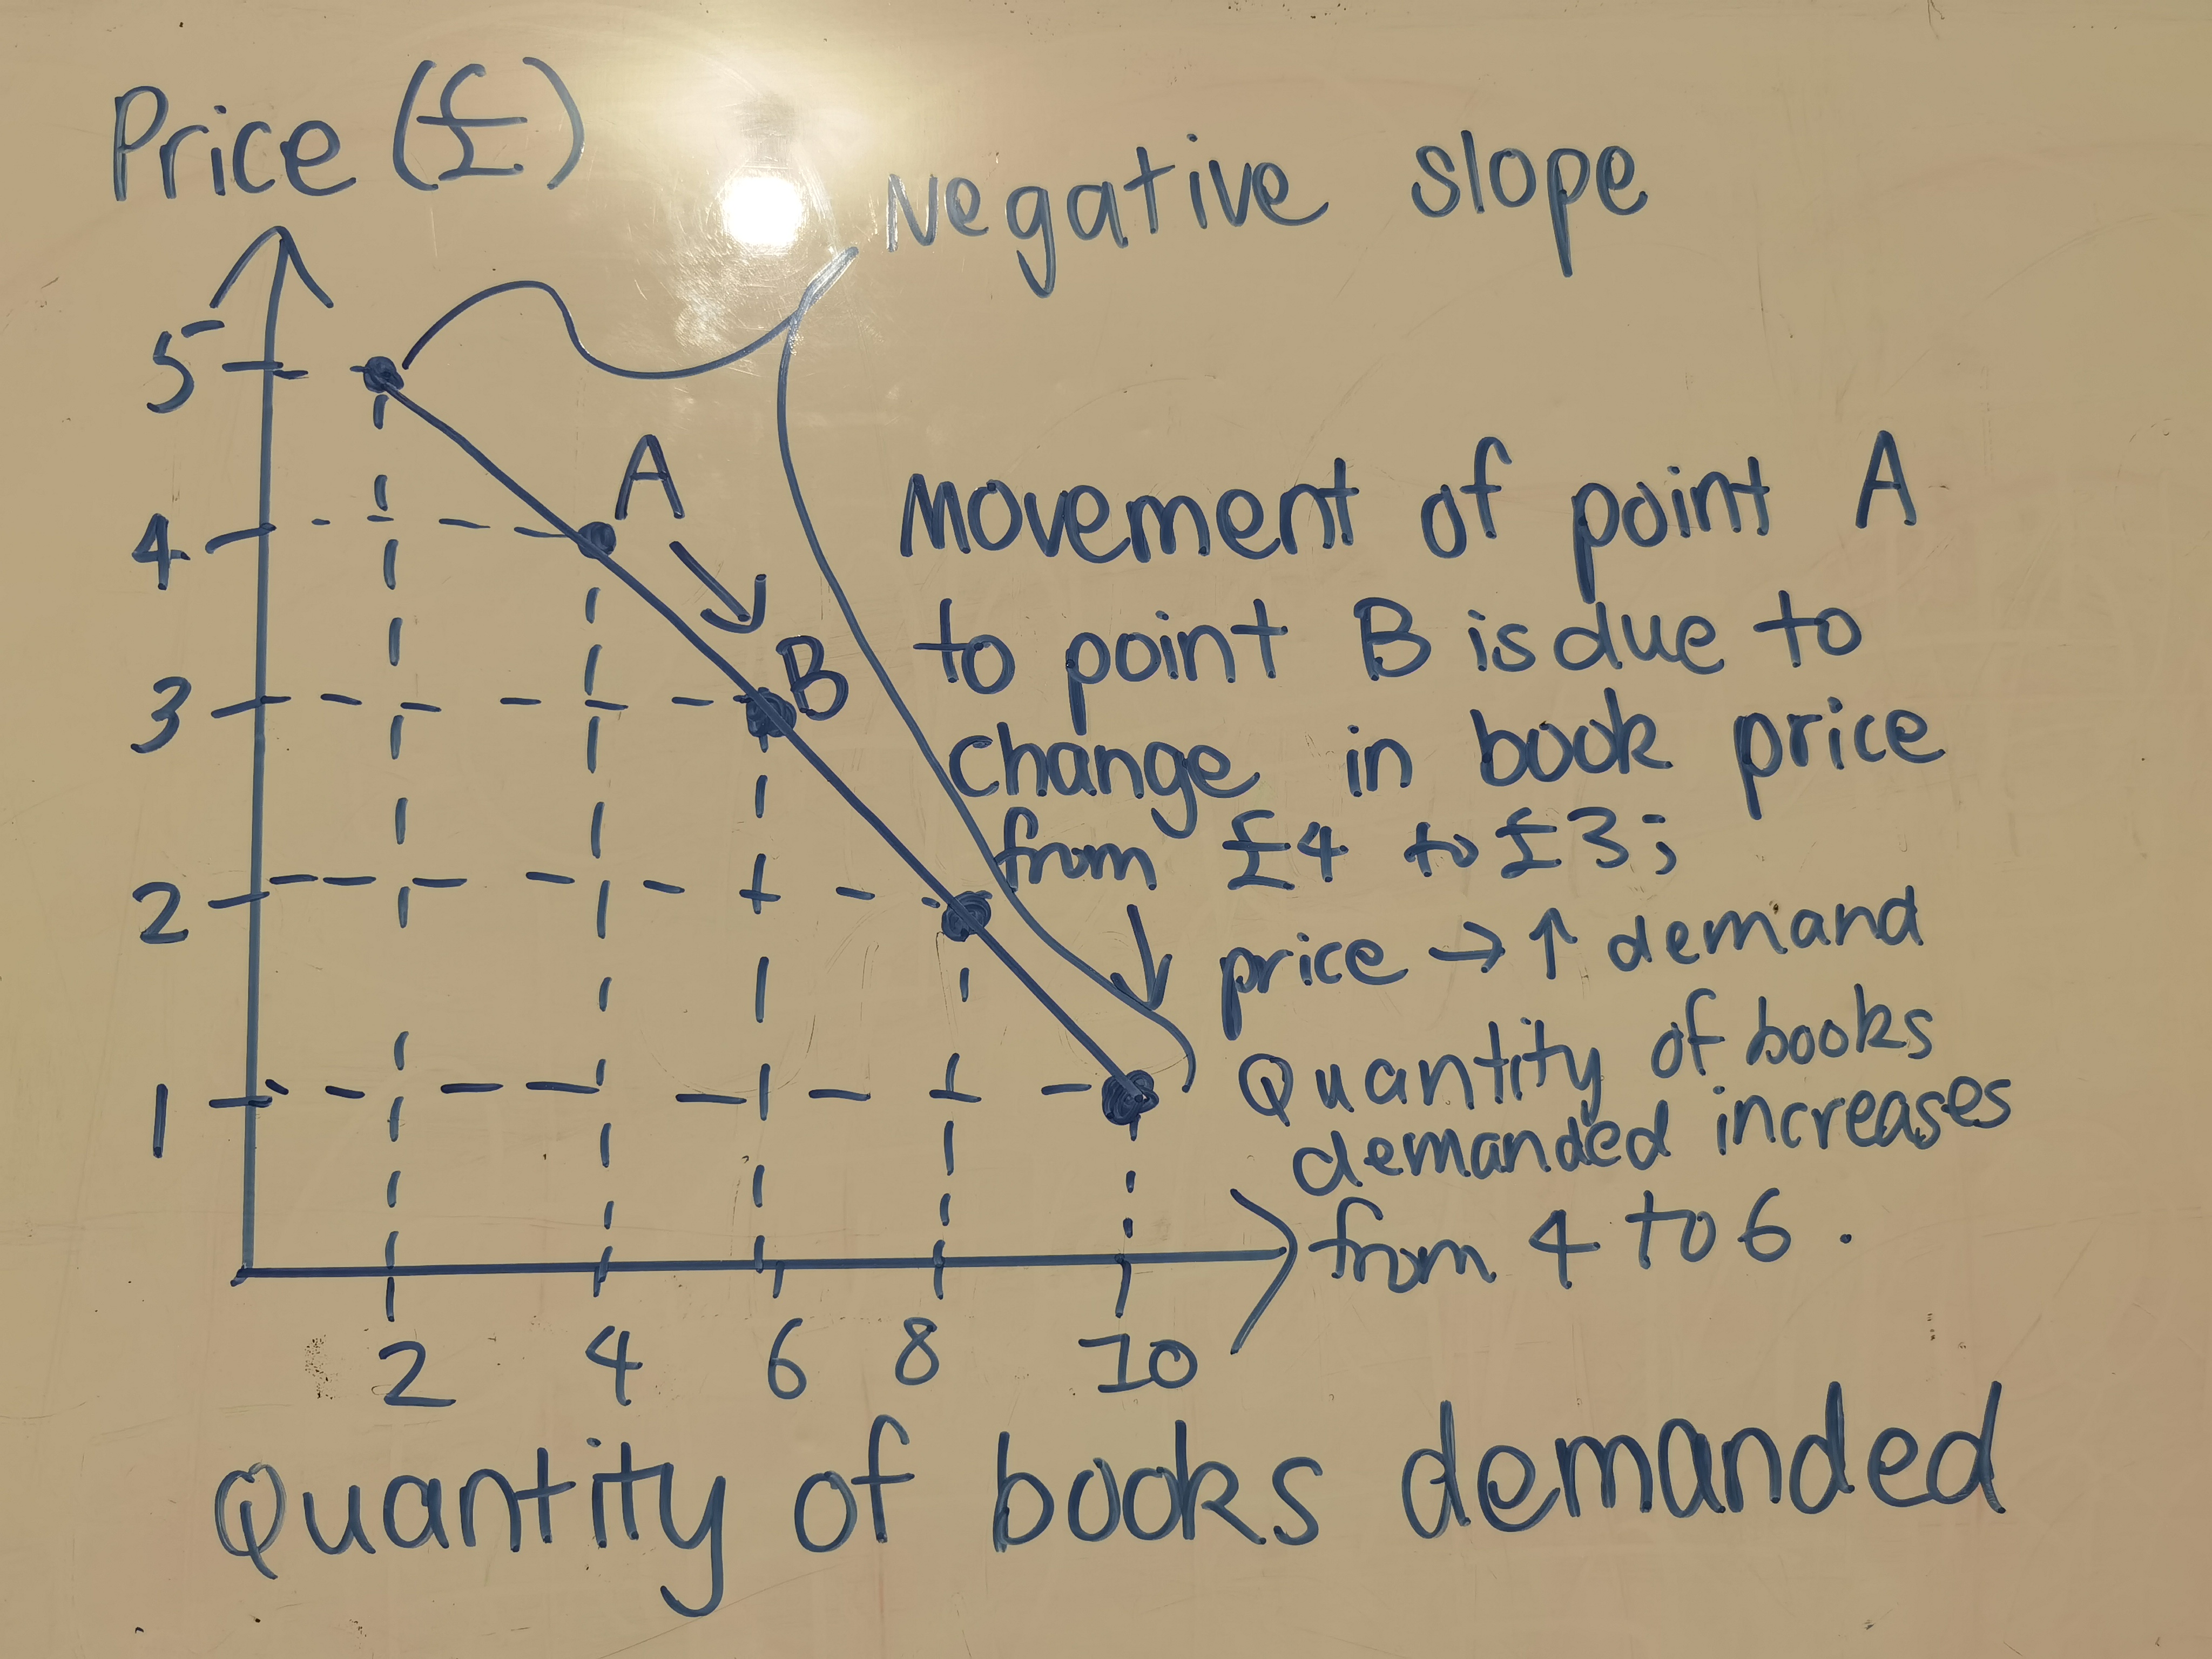 Price (£)
Negative slope
5
A
4
Movement of point A
to point B is due to
B
3
change in book price
from £4 to £3;
2
↓ price → ↑ demand
Quantity of books
1
demanded increases
from 4 to 6.
2 4 6 8 10
Quantity of books demanded